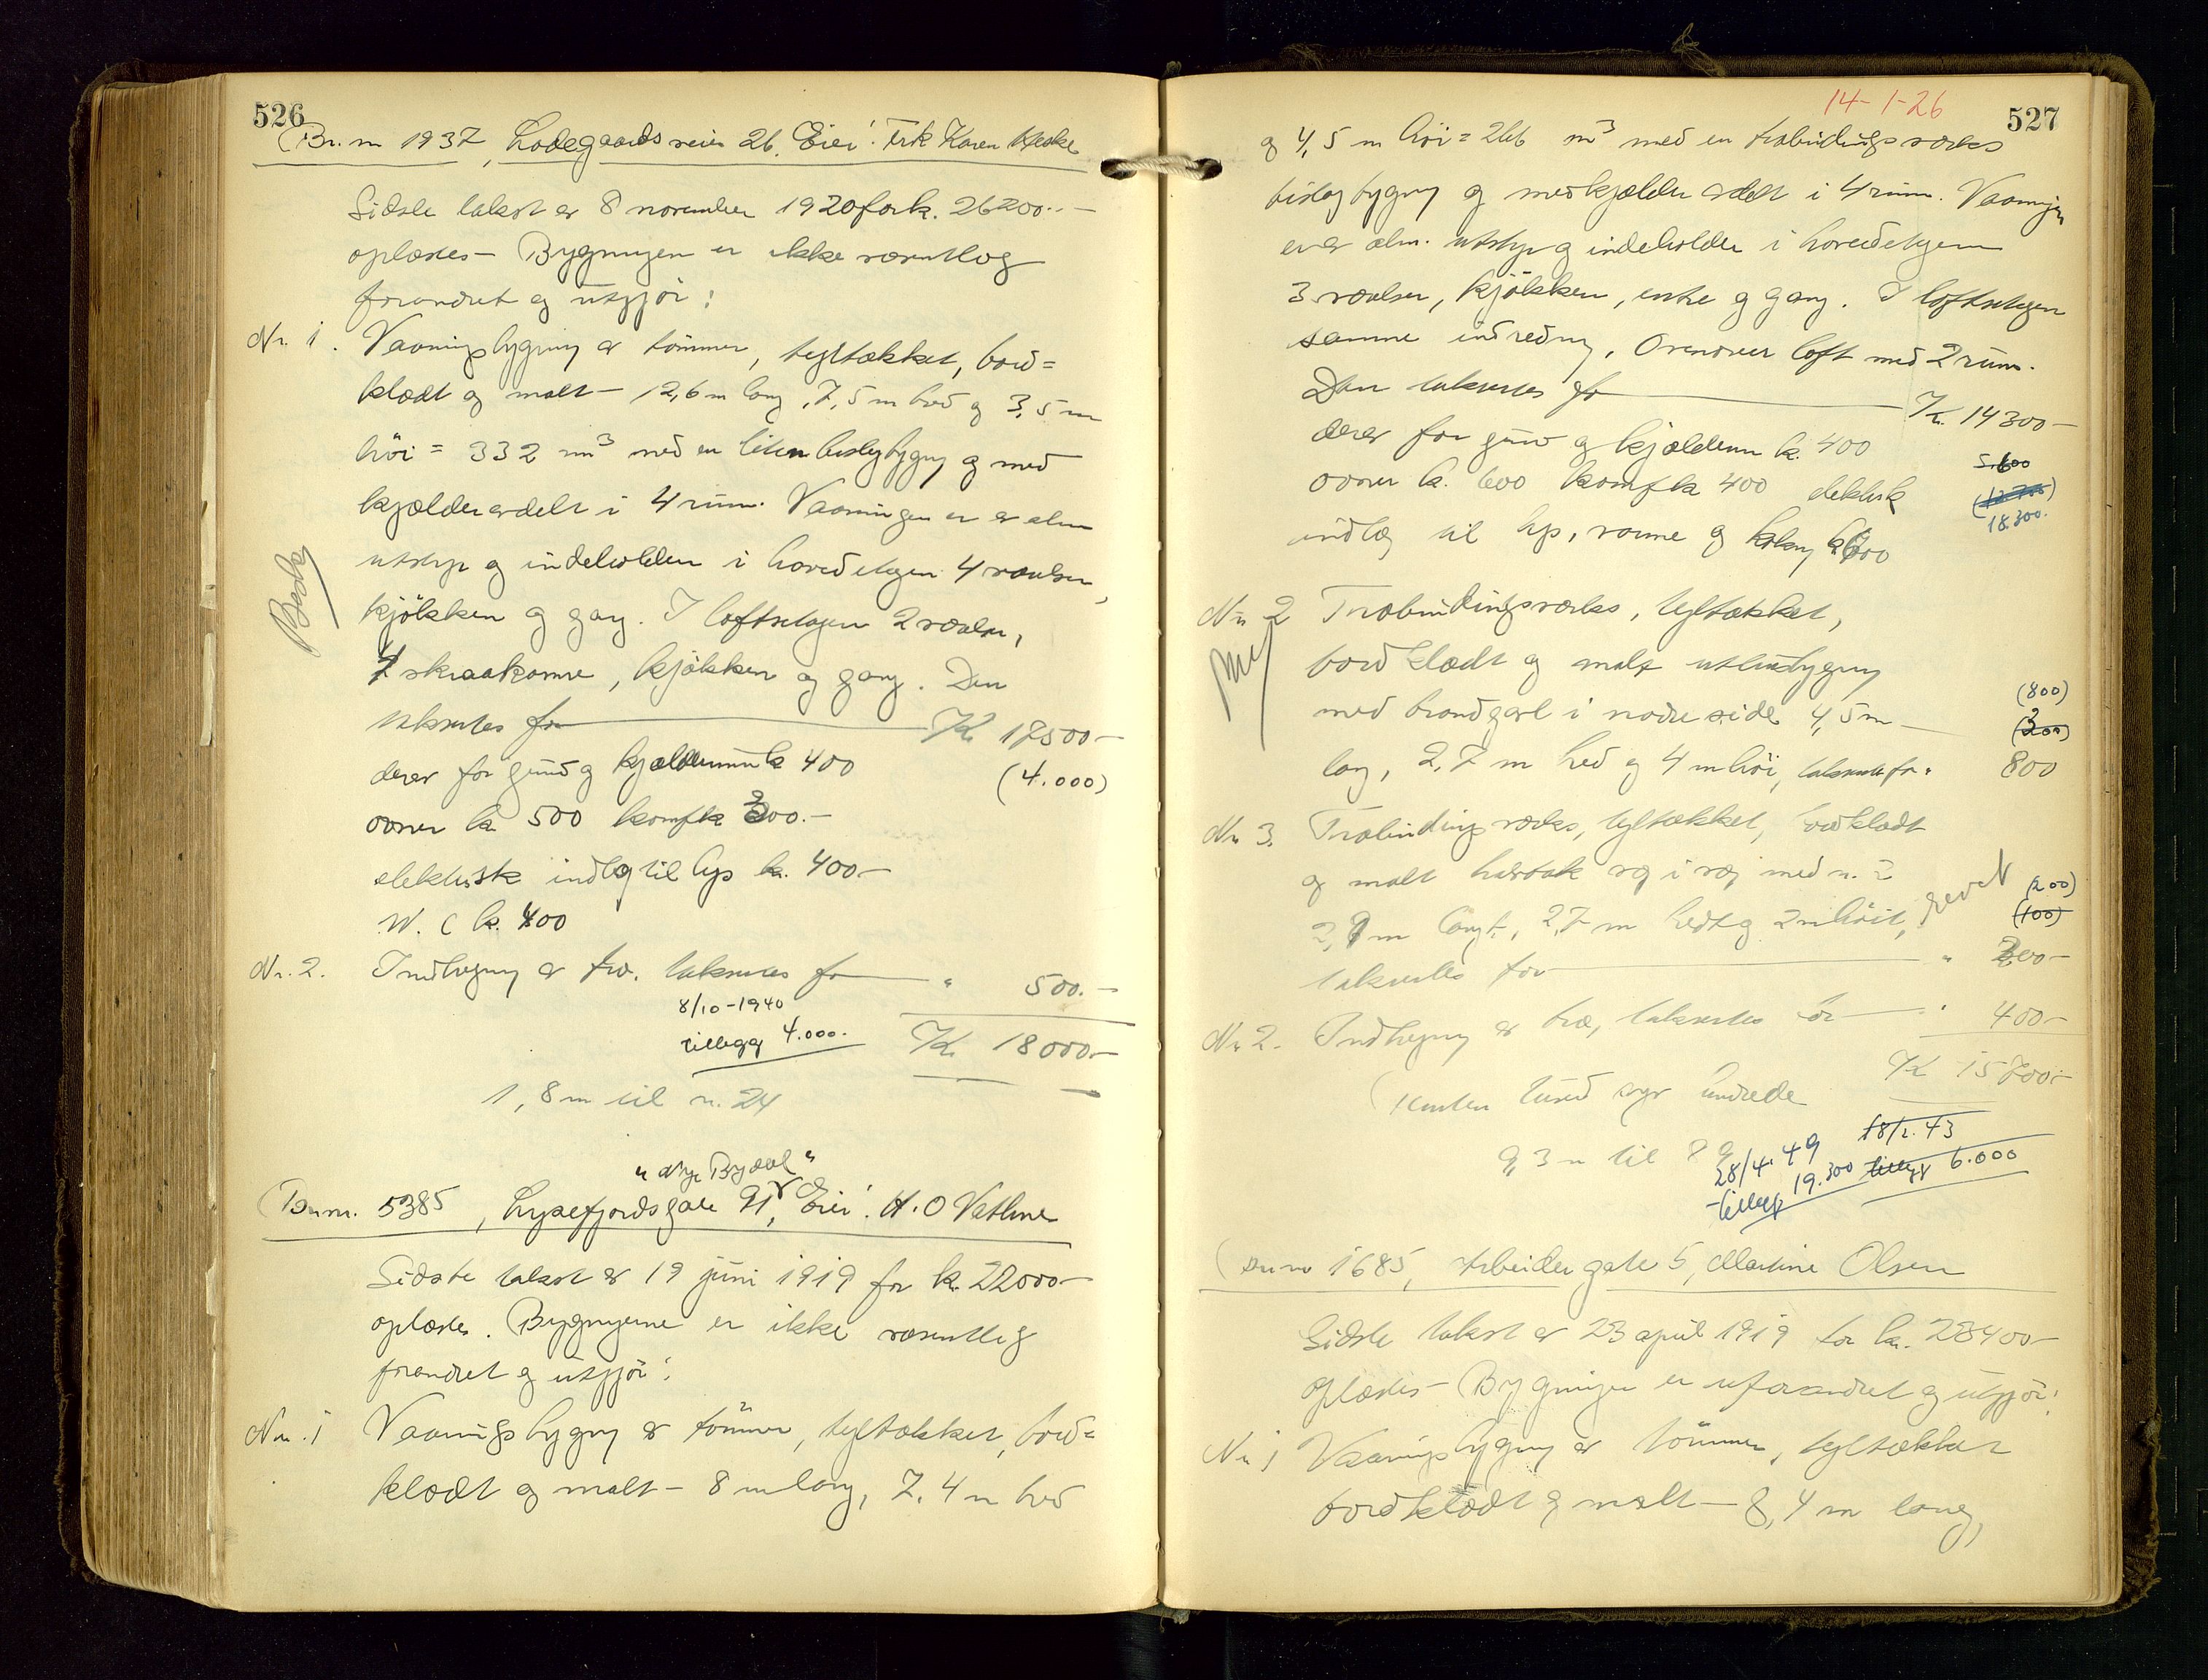 526
Br. nr 1937, Ladegaardsveien 26. Eier: Frk Karen
Sidste takst av 8 november 1920 for k. 26200.-
oplæstes - Bygningen er ikke væsentlig
forandret og utgjør:
Nr. 1. Vaaningsbygning av tømmer, tegltækket, bord=
klædt og malt - 12,6 m lang, 7,5 m bred og 3,5 m
høi = 332 m³ med en liten bislagbygng og med
kjælder avdelt i 4 rum. Vaaningen er av alm
utstyr og indeholder i hovedetagen 4 værelser,
kjøkken og gang. I loftsetagen 2 værelser,
4 skraakamre, kjøkken og gang. Den
takseres for Kr 17500-
derav for grund og kjælderrum k 400 (4.000)
ovner k. 500 komf k 300.-
elektrisk indlæg til lys k. 400-
W.C k. 400
Nr. 2. Indhegng av træ. takseres for " 500.-
8/10-1940
tillegg 4.000.-
Kr 18000-
1,8 m til nr. 24
"Nye Bydal"
Br nr. 5385, Lysefjordsgate 91, Eier: H. O Vathne
Sidste takst av 19 juni 1919 for k. 22000-
oplæstes. Bygningerne er ikke væsentlig
forandret og utgjør:
Nr. 1 Vaaningsbygng av tømmer, tegltækket, bord=
klædt og malt - 8 m lang, 7,4 m bred
14-1-26
527
og 4,5 m høi = 266 m³ med en træbindingsværks
bislagbygng og med kjælder avdelt i 4 rum. Vaaningen
er av alm. utstyr og indeholder i hovedetagen
3 værelser, kjøkken, entre og gang. I loftsetagen
samme indredng. Ovenover loft med 2 rum.
Den takseres for Kr. 14300-
derav for grund og kjælderrum k. 400
5.600
ovner k. 600 komf k 400 elektrisk
(12.700)
18.300.
indlæg til lys, varme og kokng k 600
Nr 2 Træbindingsværks, tegltækket,
bordklædt og malt uthusbygng
(800)
med brandgavl i nordre side 4,5 m
(300)
lang, 2,7 m bred og 4 m høi, takseres for " 800
Nr 3. Træbindings værks, tegltækket, bordklædt
og malt halvtak væg i væg med nr. 2
revet (200)
2,9 m langt, 2,7 m bredt og 2 m høit,
(100)
takseres for " 200-
Nr 2. Indhegng av træ, takseres for " 400-
Kr 15700.-
(femten tusend syv hundrede
9,3 m til 89
18/2. 43
28/4. 49
tillegg 6.000
tillegg 19.300
Br nr 1685, Arbeider gate 5, Martine Olsen
Sidste takst av 23 april 1919 for k. 23400-
oplæstes - Bygningen er uforandret og utgjør:
Nr 1 Vaaningsbygng av tømmer, tegltækket
bordklædt og malt - 8,4 m lang,